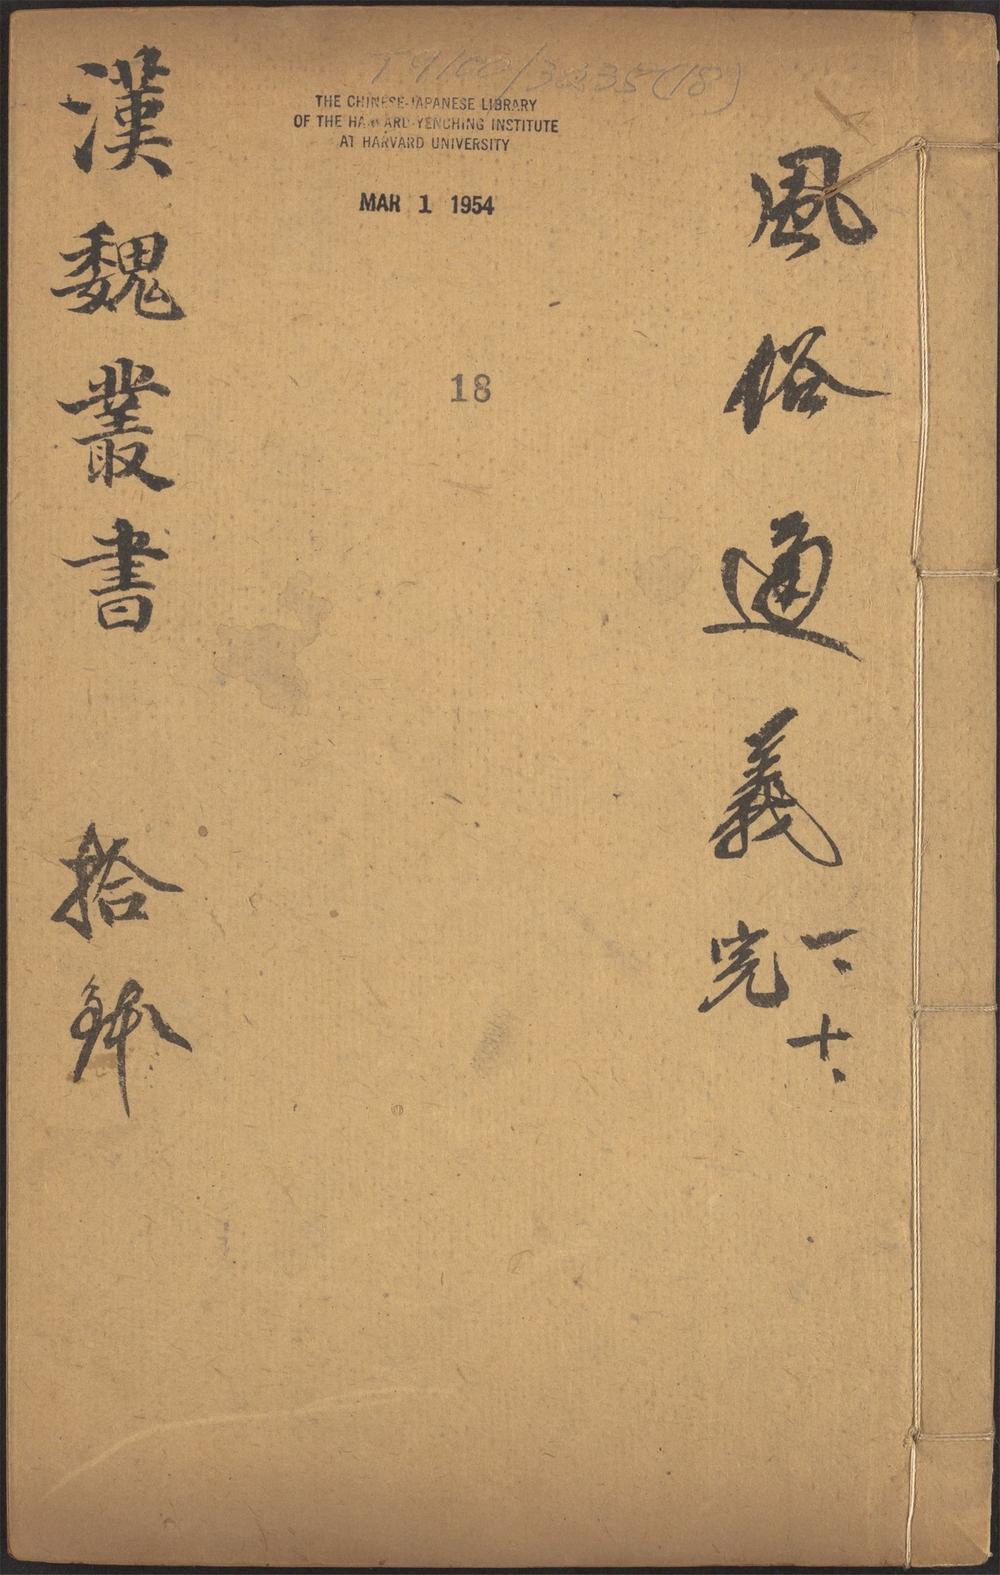 T9100/3035(18)
THE CHINESE-JAPANESE LIBRARY
OF THE HARVARD-YENCHING INSTITUTE
AT HARVARD UNIVERSITY
MAR 1 1954
18
風俗通義
一、十、
完
漢魏叢書 拾